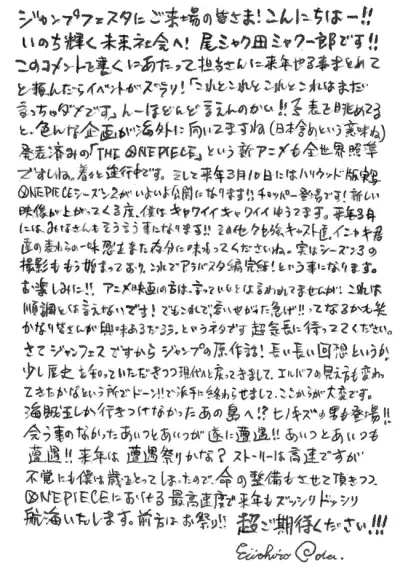 ジャンプフェスタにご来場の皆さま!こんにちはー!!
いのち輝く未来社会へ!尾ミャク田ミャク一郎です!!
このコメントを書くにあたって担当さんに来年やる事まとめて
と頼んだらイベントがズラリ!「これとこれとこれとこれはまだ
言っちゃダメです」んーほとんど言えんのかい!!予表を眺めてる
と、色んな企画が海外に向いてますね(日本含めという意味ね)
発表済みの「THE ONE PIECE」という新アニメも全世界照準
ですしね。着々と進行中です。そして来年3月10日にはハリウッド版実写
ONE PIECEシーズン2がいよいよ公開になります!!チョッパー登場です!新しい
映像が上がってくる度、僕はキャワイイキャワイイゆうてます。来年3月
には、みなさんもそう言う事になります!!その他クセ強キャスト達、イニャキ君
達の麦わらの一味も思う存分に味わってくださいね。実はシーズン3の
撮影ももう始まっており、これでアラバスタ編完結!という事になります。
お楽しみに!!アニメ映画の方は、言っていいとは言われてませんが、これは
順調とは言えないです!でもこれで「言いせがけた急げ!!ってなるかも笑
かなり皆さんが興味あるだろう、というネタです超気長に待っててください。
さてジャンフェスですからジャンプの原作話!長い長い回想というか
少し歴史を知っていただきつつ現代へと戻ってきまして、エルバフの見え方も変わっ
てきたかなという所でドーン!!で派手に終わらせまして、ここからが大変です。
海賊王しか行きつけなかったあの島へ!?ヒノキズの男も登場!!
会う事のなかったあいつとあいつが遂に遭遇!!あいつとあいつも
遭遇!!来年は遭遇祭りかな?ストーリーは高速ですが
不覚にも僕は歳をとってしまったので、命の整備もさせて頂きつつ
ONE PIECEにおける最高速度で来年もズッシリドッシリ
航海いたします。前方はお祭り!!超ご期待ください!!!
Eiichiro Oda.